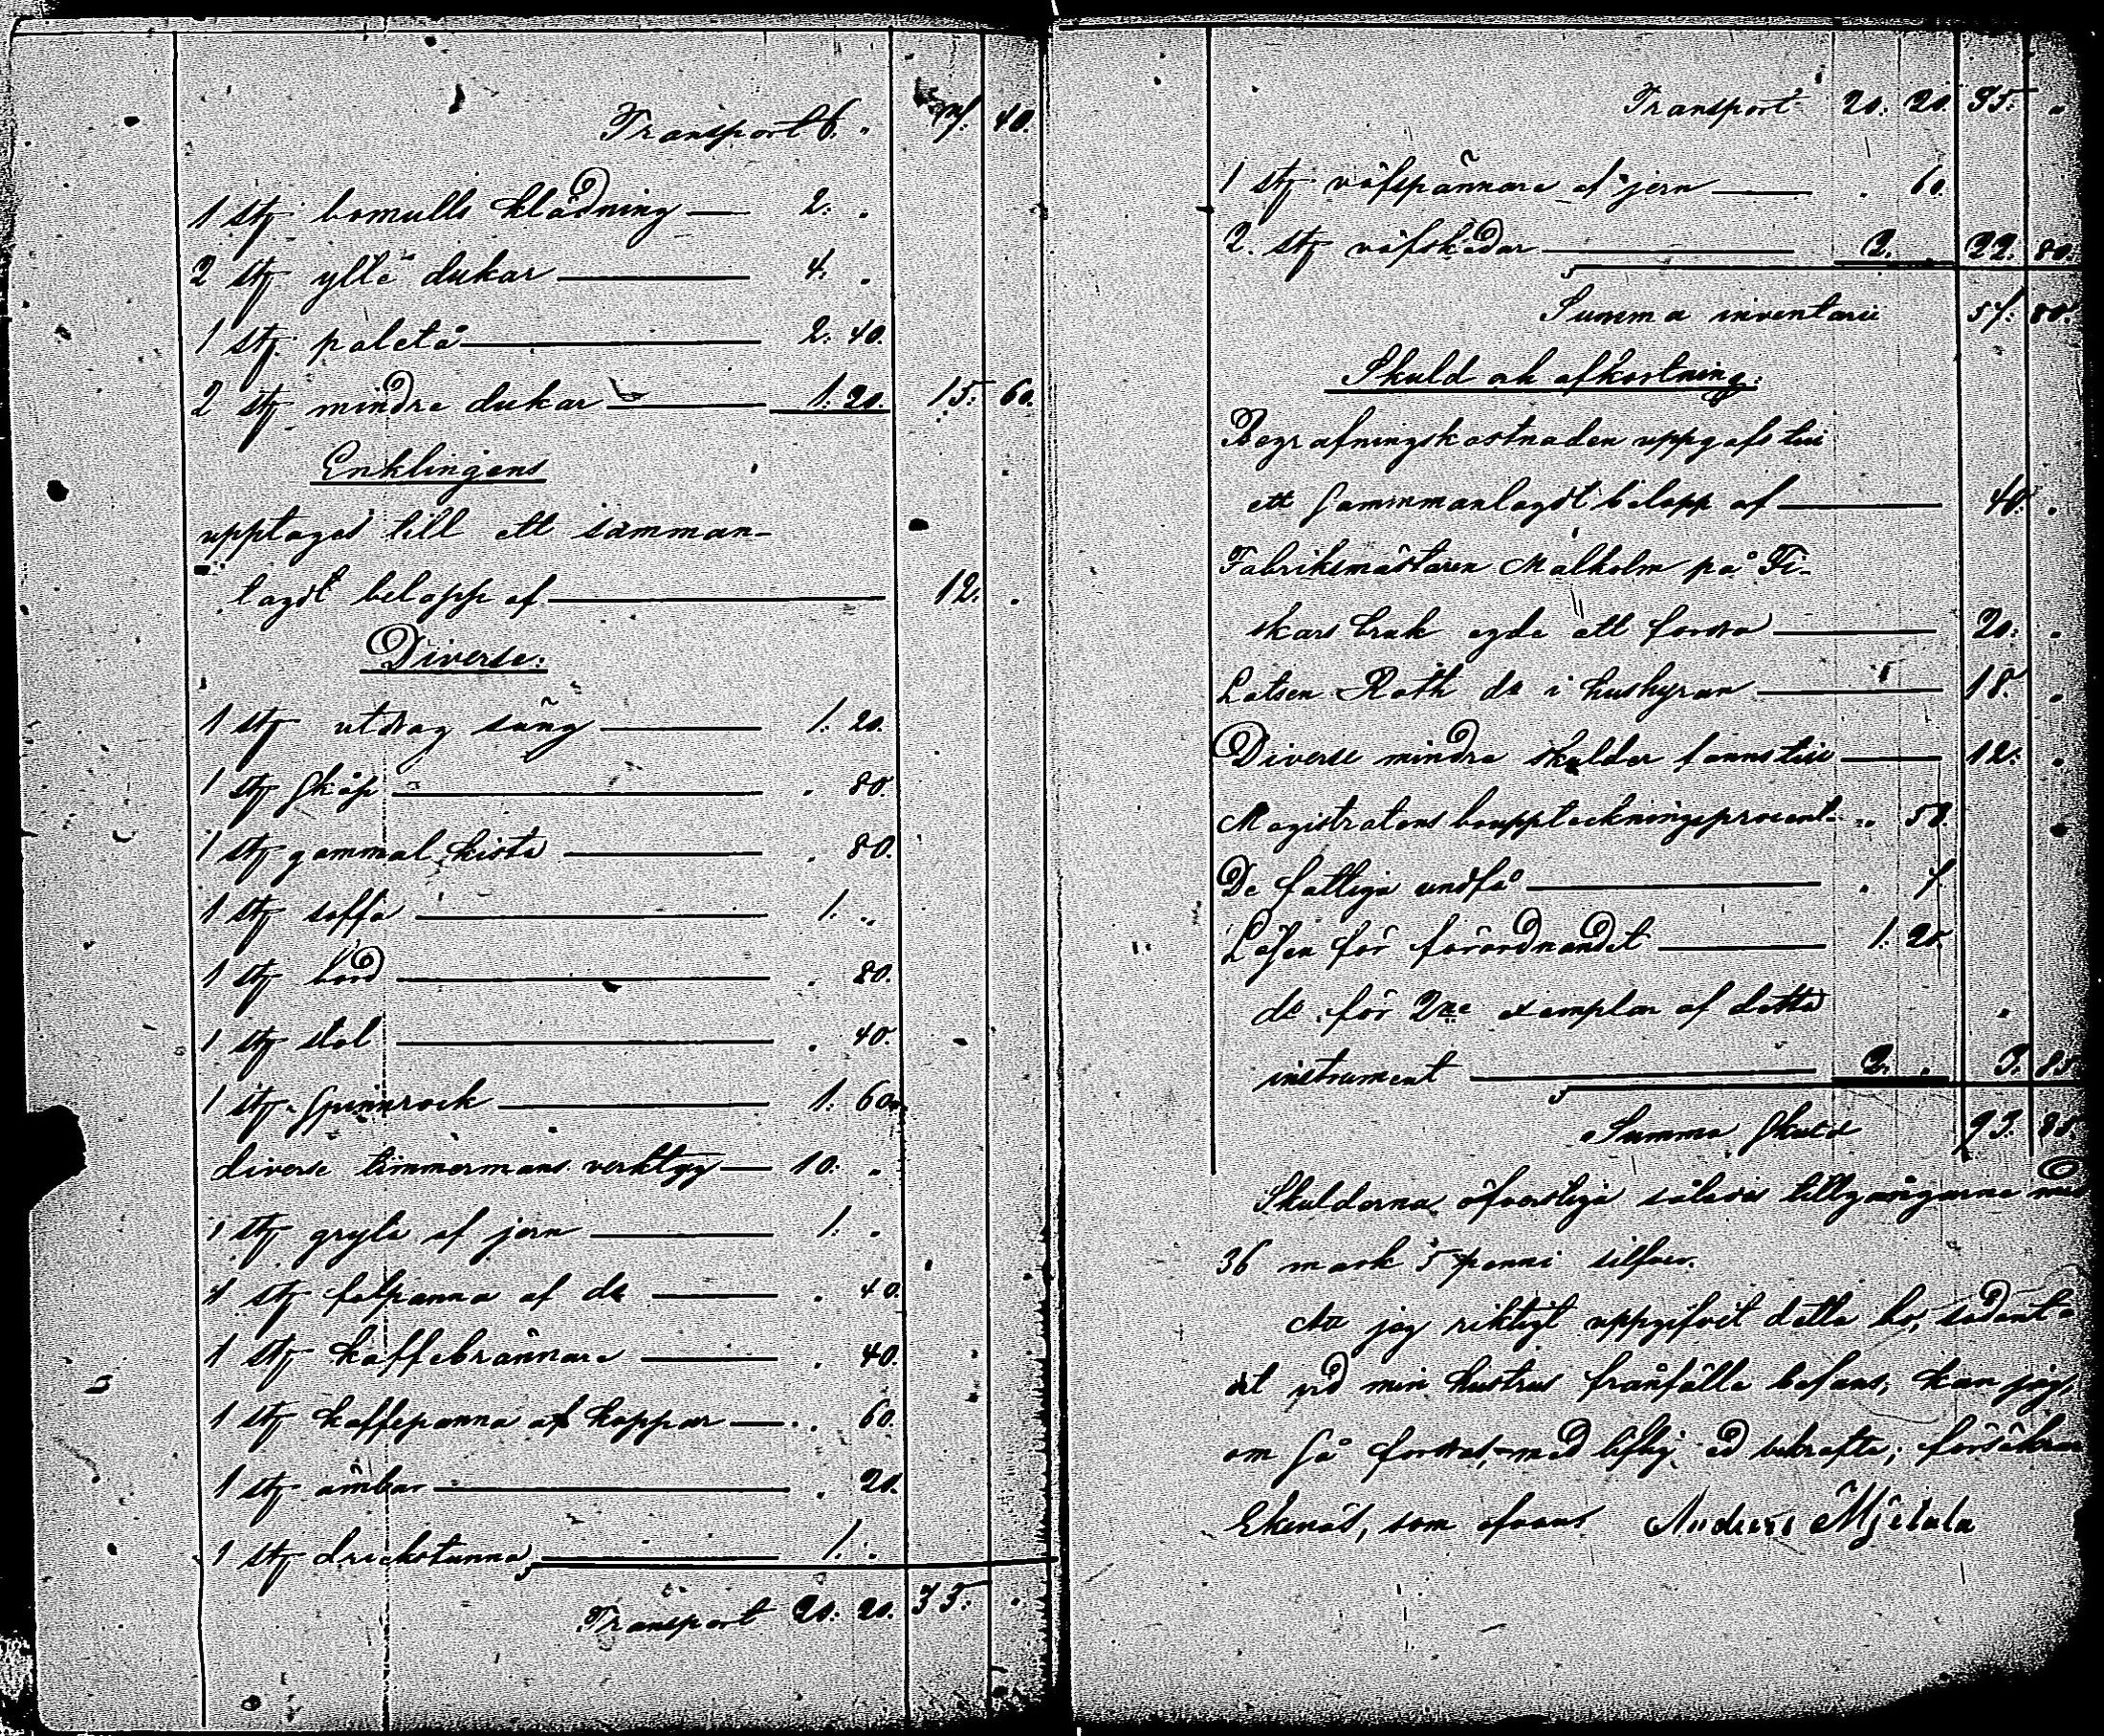 Transport 6. . 7. 40.
1 stj bomulls klädning — 2. .
2 stj ylle dukar — 4. .
1 stj paletå — 2. 40.
2 stj mindre dukar — 1. 20. 15. 60.
Enklingens
upptages till ett samman-
lagdt belopp af — 12. .
Diverse:
1 stj utdrag säng — 1. 20.
1 stj skåp — . 80.
1 stj gammal kista — . 80.
1 stj soffa — 1. .
1 stj bord — . 80.
1 stj stol — . 40.
1 stj spinnrock — 1. 60.
diverse timmermans verktyg — 10. .
1 stj gryta af jern — 1. .
1 stj fatpanna af do — . 40.
1 stj kaffebrännare — . 40.
1 stj kaffepanna af koppar — . 60.
1 stj ämbar — . 20.
1 stj drickstunna — 1. .
Transport 20. 20. 35. .
Transport 20. 20. 35. .
1 stj väfspännare af jern — . 60.
2. stj väfskedar — 2. 22. 80.
Summa inventarii 57. 80.
Skuld och afkortning:
Begrafningskostnaden uppgafs till
ett sammanlagdt belopp af — 40. .
Fabriksmästaren Malholm på Fi-
skars bruk egde att fordra — 20. .
Lotsen Roth do i hushyran — 18. .
Diverse mindre skulder fanns till — 12. .
Magistratens bouppteckningsprocent . 58.
De fattiga undfå — . 7.
Lösen för förordnandet — 1. 20.
do för 2ne exemplar af detta
instrument — 2. . 3. 85.
Summa skuld 93. 85.
Skulderna öfverstiga således tillgångarne med
36 mark 5 penni silfver.
Att jag riktigt uppgifvit detta bo, sådant
det vid min hustrus frånfälle befans, kan jag,
om så fordras, med liflig ed bekräfta; försäkrar
Ekenäs, som ofvan Anders Mjetala